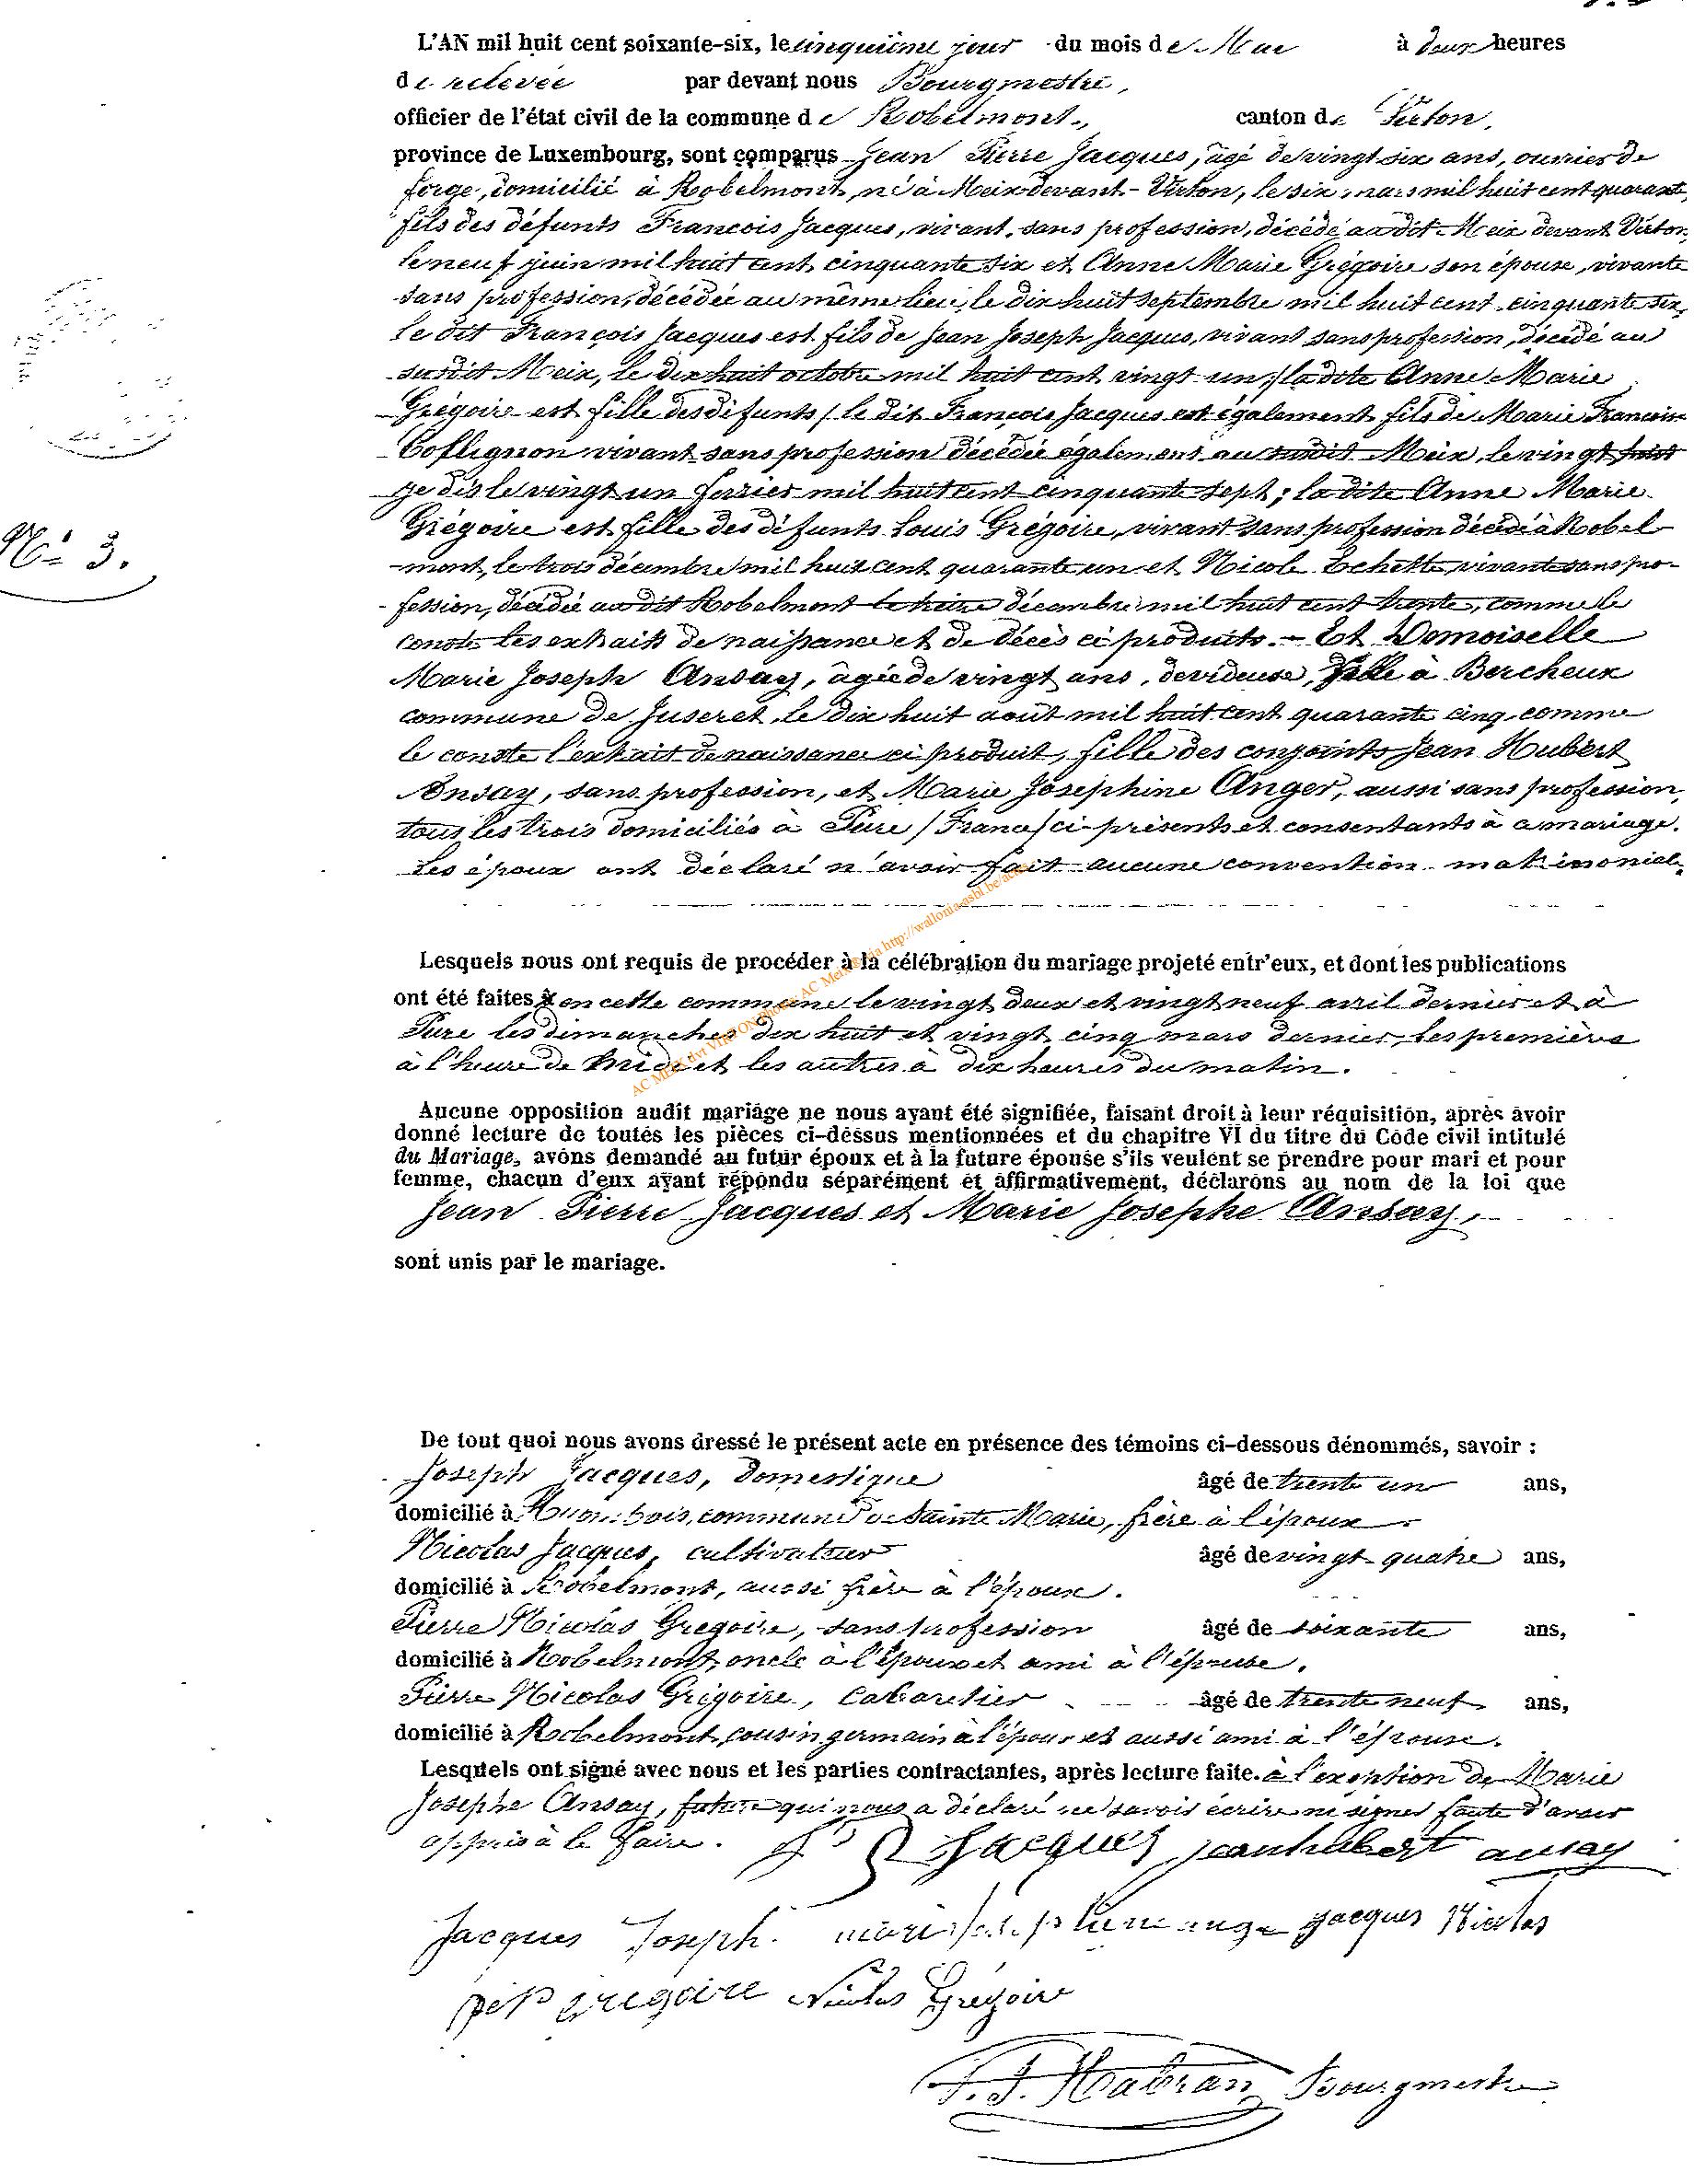 L'AN mil huit cent soixante-six, le cinquième jour du mois de Mai à deux heures
de relevée par devant nous Bourgmestre,
officier de l'état civil de la commune de Robelmont, canton de Virton,
province de Luxembourg, sont comparus Jean Pierre Jacques, âgé de vingt six ans, ouvrier de
forge, domicilié à Robelmont, né à Meix devant-Virton, le six mars mil huit cent quarante,
fils des défunts Francois Jacques, vivant, sans profession, décédé au dit Meix devant Virton,
le neuf juin mil huit cent cinquante six et Anne Marie Grégoire son épouse, vivante
sans profession, décédée au même lieu, le dix huit septembre mil huit cent cinquante six,
le dit François Jacques est fils de Jean Joseph Jacques, vivant sans profession, décédé au
susdit Meix, le dix huit octobre mil huit cent vingt un; la dite Anne Marie
Grégoire est fille des défunts / le dit François Jacques est également fils de Marie Francoise
Collignon vivant sans profession décédée également au susdit Meix, le vingt huit
je dis le vingt un février mil huit cent cinquante sept; la dite Anne Marie
Grégoire est fille des défunts Louis Grégoire, vivant sans profession décédé à Robel-
mont, le trois décembre mil huit cent quarante un et Nicole Echette, vivante sans pro-
fession, décédée au dit Robelmont le treize décembre mil huit cent trente, comme le
conste les extraits de naissance et de décès ci produits. - Et Demoiselle
Marie Joseph Ansay, âgée de vingt ans, devideuse, à Bercheux
commune de Juseret, le dix huit août mil huit cent quarante cinq comme
le conste l'extrait de naissance ci produit, fille des conjoints Jean Hubert
Ansay, sans profession, et Marie Josephine Anger, aussi sans profession,
tous les trois domiciliés à Pure / France / ci-présents et consentants à ce mariage.
Les époux ont déclaré n'avoir fait aucune convention matrimoniale.
AC MEIX dvt VIRTON Photos AC via http://wallonia-asbl.be/actes
Lesquels nous ont requis de procéder à la célébration du mariage projeté entr'eux, et dont les publications
ont été faites en cette commune le vingt deux et vingt neuf avril dernier et à
Pure les dimanches dix huit et vingt cinq mars dernier, les premières
à l'heure de midi et les autres à dix heures du matin.
Aucune opposition audit mariage ne nous ayant été signifiée, faisant droit à leur réquisition, après avoir
donné lecture de toutes les pièces ci-dessus mentionnées et du chapitre VI du titre du Code civil intitulé
du Mariage, avons demandé au futur époux et à la future épouse s'ils veulent se prendre pour mari et pour
femme, chacun d'eux ayant répondu séparément et affirmativement, déclarons au nom de la loi que
Jean Pierre Jacques et Marie Josephe Ansay,
sont unis par le mariage.
N° 3.
De tout quoi nous avons dressé le présent acte en présence des témoins ci-dessous dénommés, savoir :
Joseph Jacques, domestique âgé de trente un ans,
domicilié à commune de Sainte Marie, frère à l'époux
Nicolas Jacques, cultivateur âgé de vingt quatre ans,
domicilié à Robelmont, aussi frère à l'époux.
Pierre Nicolas Gregoire, sans profession âgé de soixante ans,
domicilié à Robelmont, oncle à l'époux et ami à l'épouse.
Pierre Nicolas Grégoire, Cabaretier âgé de trente neuf ans,
domicilié à Robelmont, cousin germain à l'époux et aussi ami à l'épouse.
Lesquels ont signé avec nous et les parties contractantes, après lecture faite. à l'exeption de Marie
Josephe Ansay, future qui nous a déclaré ne savoir écrire ni signer faute d'avoir
appris à le faire. Jacques jean hubert ansay
Jacques Joseph. jacques Nicolas
gregoire Nicolas Grégoire
Habran, Bourgmestre